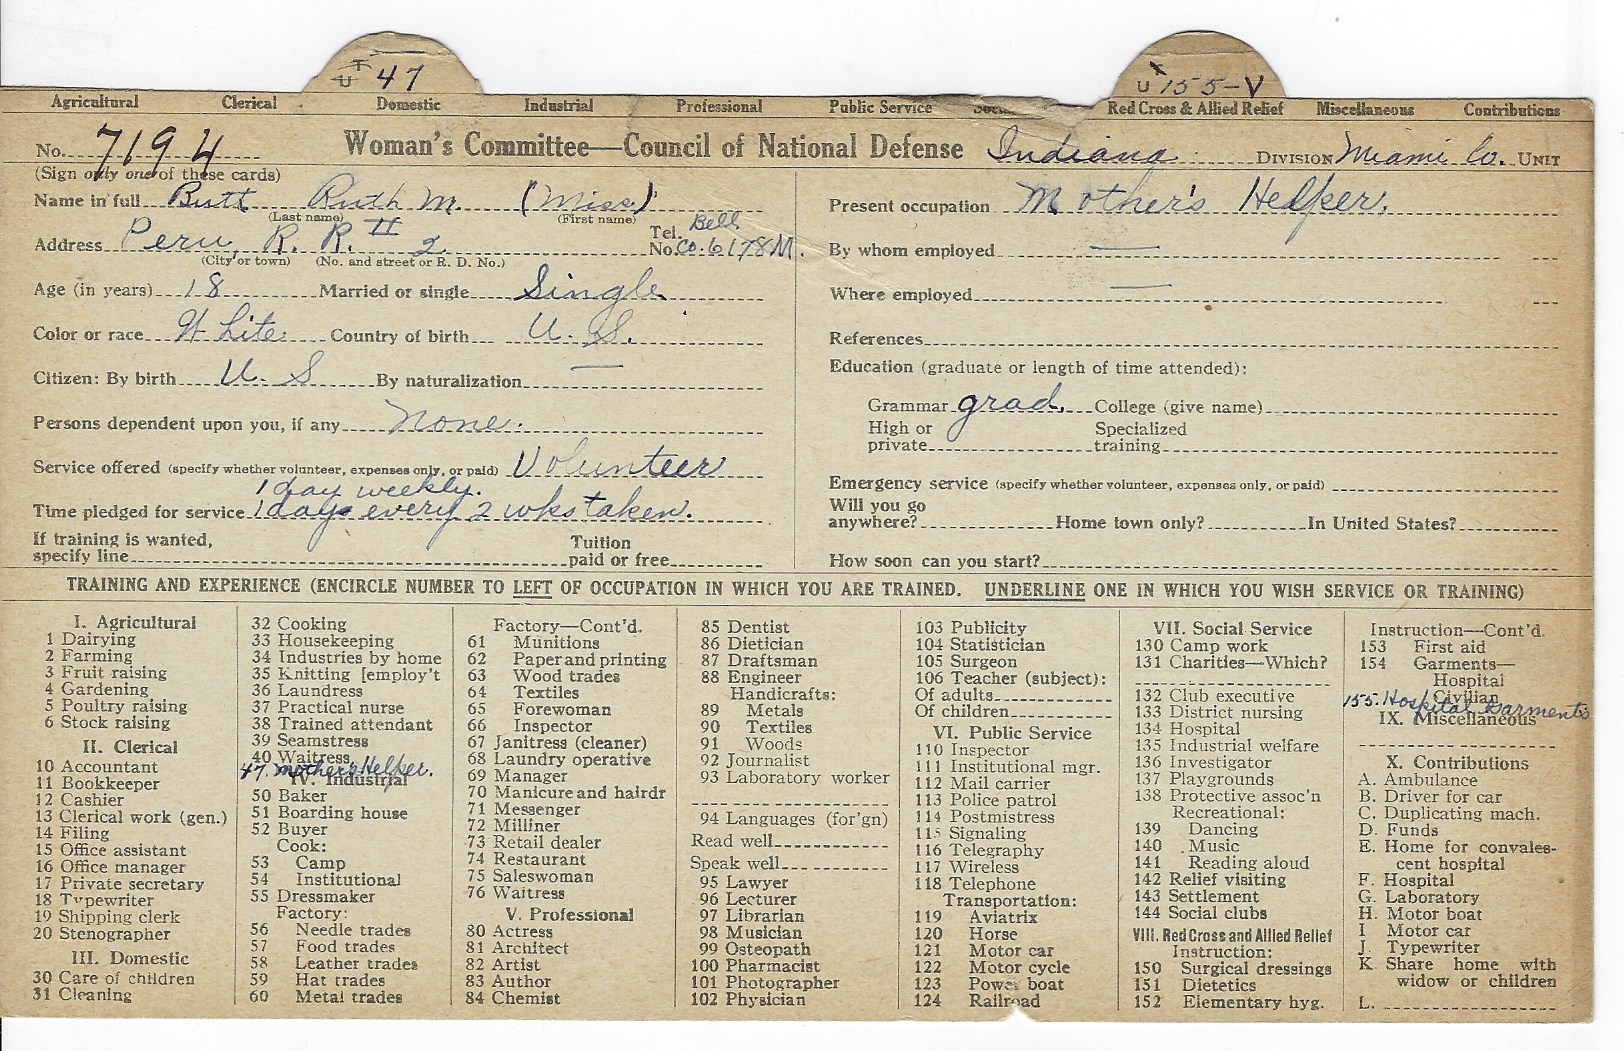 T
U 47
U 155-V
Agricultural Clerical Domestic Industrial Professional Public Service Red Cross & Allied Relief Miscellaneous Contributions
No. 7194 Woman's Committee—Council of National Defense Indiana DIVISION Miami Co. UNIT
(Sign only one of these cards)
Name in full Butt Ruth M. (Miss)
(Last name) (First name)
Address Peru, R. R. II 2 Tel. No. Bell Co. 6178M.
(City or town) (No. and street or R. D. No.)
Age (in years) 18 Married or single Single
Color or race White Country of birth U. S.
Citizen: By birth U. S By naturalization —
Persons dependent upon you, if any None.
Service offered (specify whether volunteer, expenses only, or paid) Volunteer
1 day weekly.
Time pledged for service 1 day every 2 wks taken.
If training is wanted,
specify line Tuition paid or free
Present occupation Mother's Helper.
By whom employed —
Where employed —
References
Education (graduate or length of time attended):
Grammar grad. College (give name)
High or private Specialized training
Emergency service (specify whether volunteer, expenses only, or paid)
Will you go
anywhere? Home town only? In United States?
How soon can you start?
TRAINING AND EXPERIENCE (ENCIRCLE NUMBER TO LEFT OF OCCUPATION IN WHICH YOU ARE TRAINED. UNDERLINE ONE IN WHICH YOU WISH SERVICE OR TRAINING)
I. Agricultural
1 Dairying
2 Farming
3 Fruit raising
4 Gardening
5 Poultry raising
6 Stock raising
II. Clerical
10 Accountant
11 Bookkeeper
12 Cashier
13 Clerical work (gen.)
14 Filing
15 Office assistant
16 Office manager
17 Private secretary
18 Typewriter
19 Shipping clerk
20 Stenographer
III. Domestic
30 Care of children
31 Cleaning
32 Cooking
33 Housekeeping
34 Industries by home
35 Knitting [employ't
36 Laundress
37 Practical nurse
38 Trained attendant
39 Seamstress
40 Waitress
47. Mother's Helper.
IV. Industrial
50 Baker
51 Boarding house
52 Buyer
Cook:
53 Camp
54 Institutional
55 Dressmaker
Factory:
56 Needle trades
57 Food trades
58 Leather trades
59 Hat trades
60 Metal trades
Factory—Cont'd.
61 Munitions
62 Paper and printing
63 Wood trades
64 Textiles
65 Forewoman
66 Inspector
67 Janitress (cleaner)
68 Laundry operative
69 Manager
70 Manicure and hairdr
71 Messenger
72 Milliner
73 Retail dealer
74 Restaurant
75 Saleswoman
76 Waitress
V. Professional
80 Actress
81 Architect
82 Artist
83 Author
84 Chemist
85 Dentist
86 Dietician
87 Draftsman
88 Engineer
Handicrafts:
89 Metals
90 Textiles
91 Woods
92 Journalist
93 Laboratory worker
94 Languages (for'gn)
Read well
Speak well
95 Lawyer
96 Lecturer
97 Librarian
98 Musician
99 Osteopath
100 Pharmacist
101 Photographer
102 Physician
103 Publicity
104 Statistician
105 Surgeon
106 Teacher (subject):
Of adults
Of children
VI. Public Service
110 Inspector
111 Institutional mgr.
112 Mail carrier
113 Police patrol
114 Postmistress
115 Signaling
116 Telegraphy
117 Wireless
118 Telephone
Transportation:
119 Aviatrix
120 Horse
121 Motor car
122 Motor cycle
123 Power boat
124 Railroad
VII. Social Service
130 Camp work
131 Charities—Which?
132 Club executive
133 District nursing
134 Hospital
135 Industrial welfare
136 Investigator
137 Playgrounds
138 Protective assoc'n
Recreational:
139 Dancing
140 Music
141 Reading aloud
142 Relief visiting
143 Settlement
144 Social clubs
VIII. Red Cross and Allied Relief
Instruction:
150 Surgical dressings
151 Dietetics
152 Elementary hyg.
Instruction—Cont'd.
153 First aid
154 Garments—
Hospital
Civilian
155. Hospital Garments
IX. Miscellaneous
X. Contributions
A. Ambulance
B. Driver for car
C. Duplicating mach.
D. Funds
E. Home for convales-
cent hospital
F. Hospital
G. Laboratory
H. Motor boat
I Motor car
J. Typewriter
K. Share home with
widow or children
L.